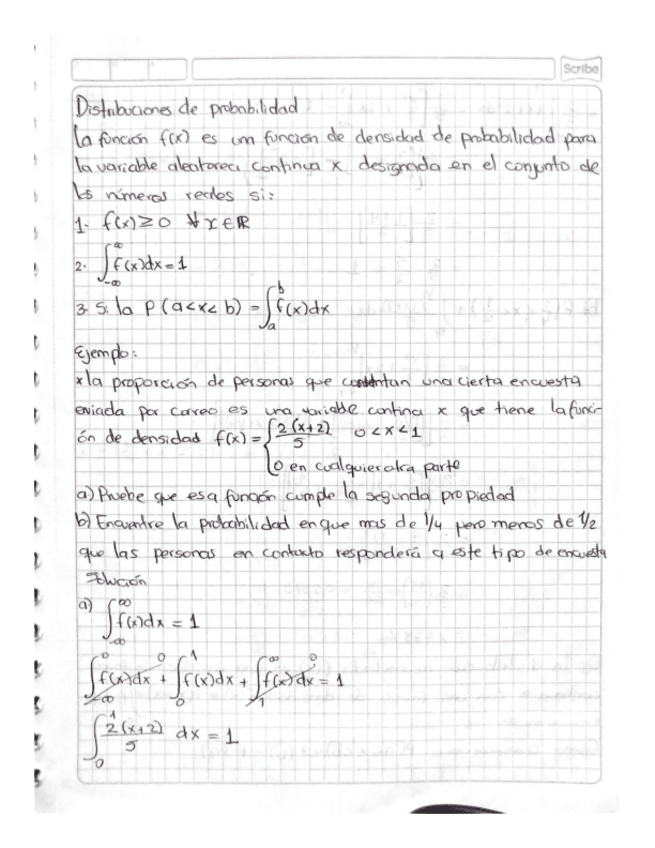 Scribe
Distribuciones de probabilidad
La función f(x) es um función de densidad de probabilidad para
la variable aleatorea continua x designada en el conjunto de
los números reales si:
1- f(x) ≥ 0 ∀ x ∈ ℝ
2. ∫_{-∞}^{∞} f(x)dx = 1
3. Si la P(a<x<b) = ∫_a^b f(x)dx
Ejemplo:
* la proporción de personas que contentan una cierta encuesta
enviada por correo es una variable continua x que tiene la funci-
ón de densidad f(x) = { 2(x+2)/5 0<x<1
0 en cualquier otra parte
a) Pruebe que esa función cumple la segunda propiedad
b) Encuentre la probabilidad en que mas de 1/4 pero menos de 1/2
que las personas en contacto responderá a este tipo de encuesta
Solución
a) ∫_{-∞}^{∞} f(x)dx = 1
∫_{-∞}^{0} f(x)dx 0 + ∫_0^1 f(x)dx + ∫_1^{∞} f(x)dx 0 = 1
∫_0^1 2(x+2)/5 dx = 1